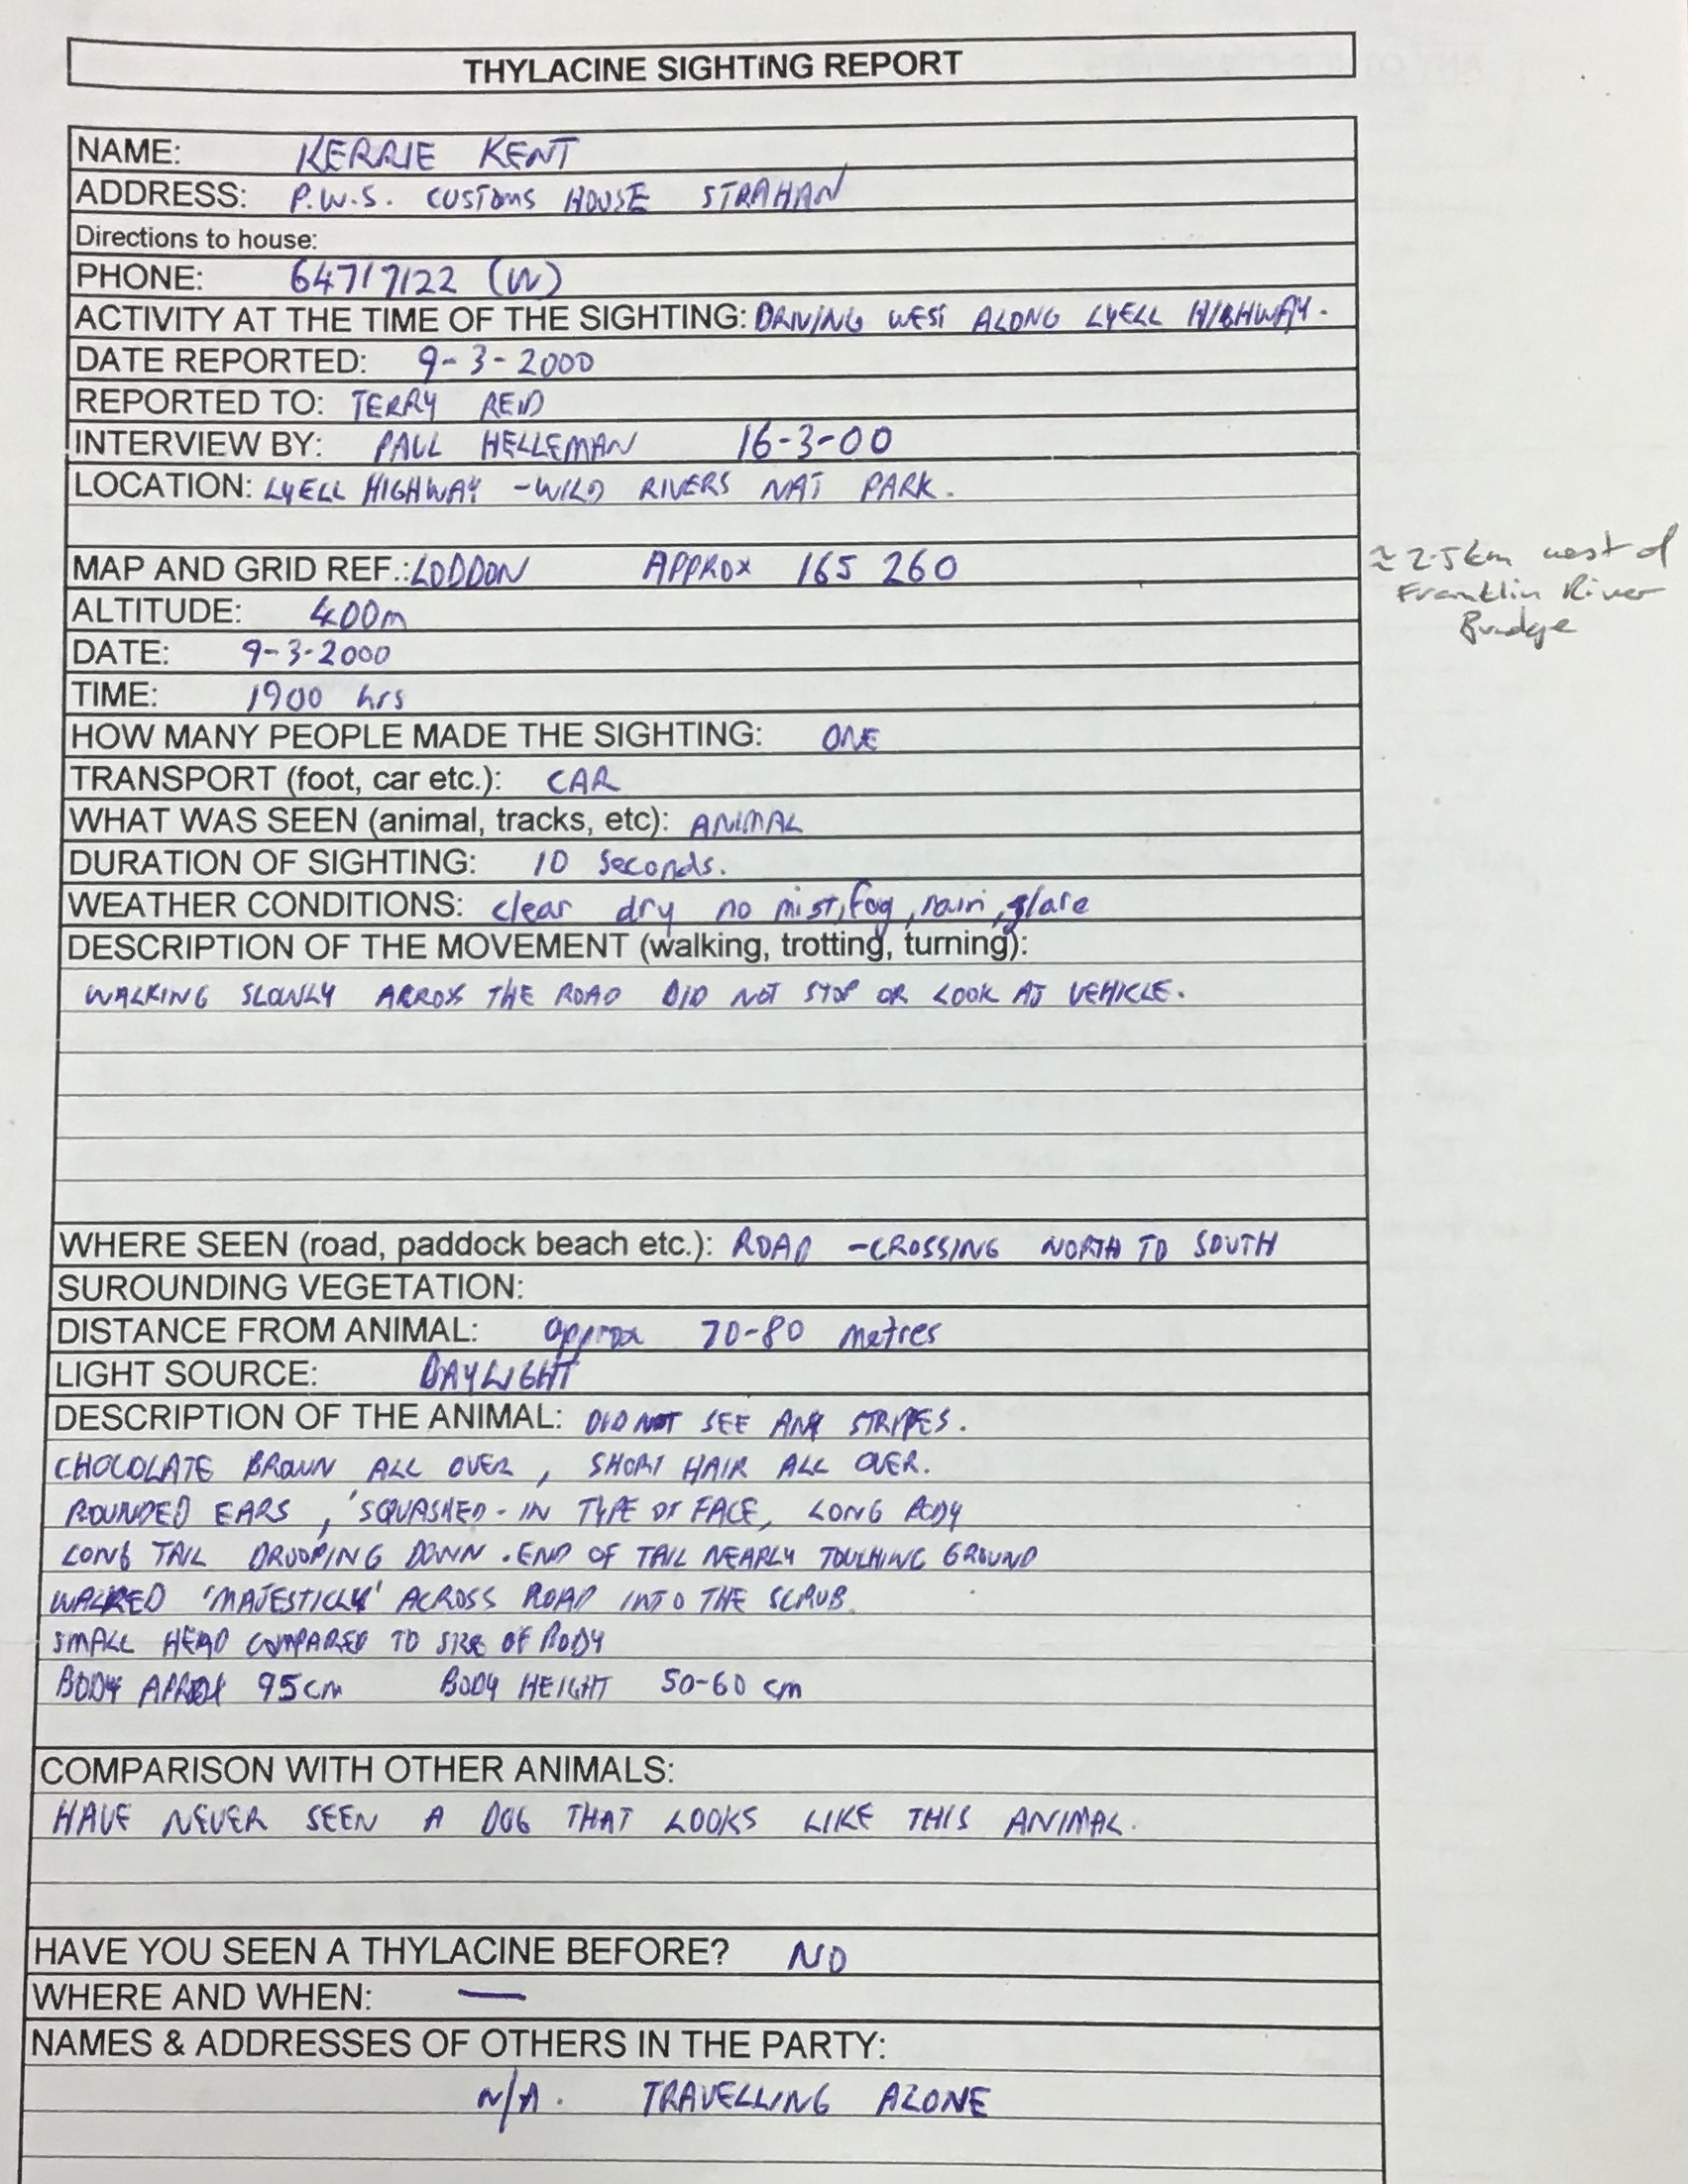 THYLACINE SIGHTING REPORT
NAME: KERRIE KENT
ADDRESS: P.W.S. CUSTOMS HOUSE STRAHAN
Directions to house:
PHONE: 64717122 (W)
ACTIVITY AT THE TIME OF THE SIGHTING: DRIVING WEST ALONG LYELL HIGHWAY.
DATE REPORTED: 9-3-2000
REPORTED TO: TERRY REID
INTERVIEW BY: PAUL HELLEMAN 16-3-00
LOCATION: LYELL HIGHWAY - WILD RIVERS NAT PARK.
MAP AND GRID REF.: LODDON APPROX 165 260
≈ 2.5km west of
Franklin River
Bridge
ALTITUDE: 400m
DATE: 9-3-2000
TIME: 1900 hrs
HOW MANY PEOPLE MADE THE SIGHTING: ONE
TRANSPORT (foot, car etc.): CAR
WHAT WAS SEEN (animal, tracks, etc): ANIMAL
DURATION OF SIGHTING: 10 Seconds.
WEATHER CONDITIONS: clear dry no mist, fog, rain, glare
DESCRIPTION OF THE MOVEMENT (walking, trotting, turning):
WALKING SLOWLY ARROSS THE ROAD DID NOT STOP OR LOOK AT VEHICLE.
WHERE SEEN (road, paddock beach etc.): ROAD - CROSSING NORTH TO SOUTH
SUROUNDING VEGETATION:
DISTANCE FROM ANIMAL: approx 70-80 metres
LIGHT SOURCE: DAYLIGHT
DESCRIPTION OF THE ANIMAL: DID NOT SEE ANY STRIPES.
CHOCOLATE BROWN ALL OVER, SHORT HAIR ALL OVER.
ROUNDED EARS, 'SQUASHED - IN TYPE OF FACE, LONG BODY
LONG TAIL DROOPING DOWN. END OF TAIL NEARLY TOUCHING GROUND
WALKED 'MAJESTICLY' ACROSS ROAD INTO THE SCRUB.
SMALL HEAD COMPARED TO SIZE OF BODY
BODY APROX 95cm BODY HEIGHT 50-60 cm
COMPARISON WITH OTHER ANIMALS:
HAVE NEVER SEEN A DOG THAT LOOKS LIKE THIS ANIMAL.
HAVE YOU SEEN A THYLACINE BEFORE? NO
WHERE AND WHEN: —
NAMES & ADDRESSES OF OTHERS IN THE PARTY:
N/A. TRAVELLING ALONE